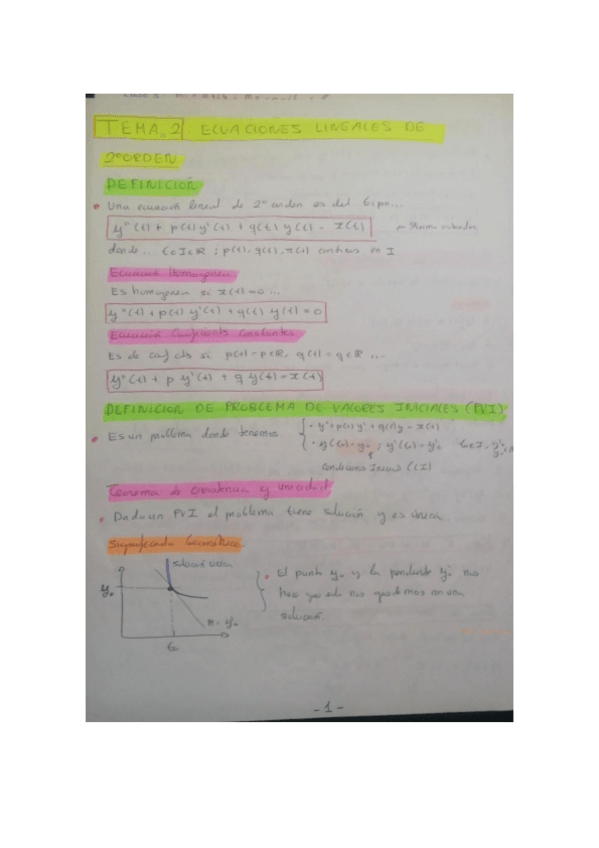 TEMA. 2 ECUACIONES LINEALES DE
2º ORDEN
DEFINICION
Una ecuación lineal de 2º orden es del tipo...
y''(t) + p(t) y'(t) + q(t) y(t) = r(t)
donde... t∈I⊂R ; p(t), q(t), r(t) continuas en I
Ecuación Homogenea
Es homogenea si r(t)=0 ...
y''(t) + p(t) y'(t) + q(t) y(t) = 0
Ecuación Coeficientes Constantes
Es de coef. cts si p(t)=p∈R, q(t)=q∈R ...
y''(t) + p y'(t) + q y(t) = r(t)
DEFINICION DE PROBLEMA DE VALORES INICIALES (PVI)
Es un problema donde tenemos
· y''+p(t) y' + q(t) y = r(t)
· y(t₀)=y₀ ; y'(t₀)=y'₀ t₀∈I,
Condiciones Iniciales (CI)
Teorema de existencia y unicidad
Dado un PVI el problema tiene solución y es única
Significado Geométrico
solución única
y₀
m = y'₀
t₀
El punto y₀ y la pendiente y'₀ nos
hace que solo nos quedemos con una
solución.
- 1 -